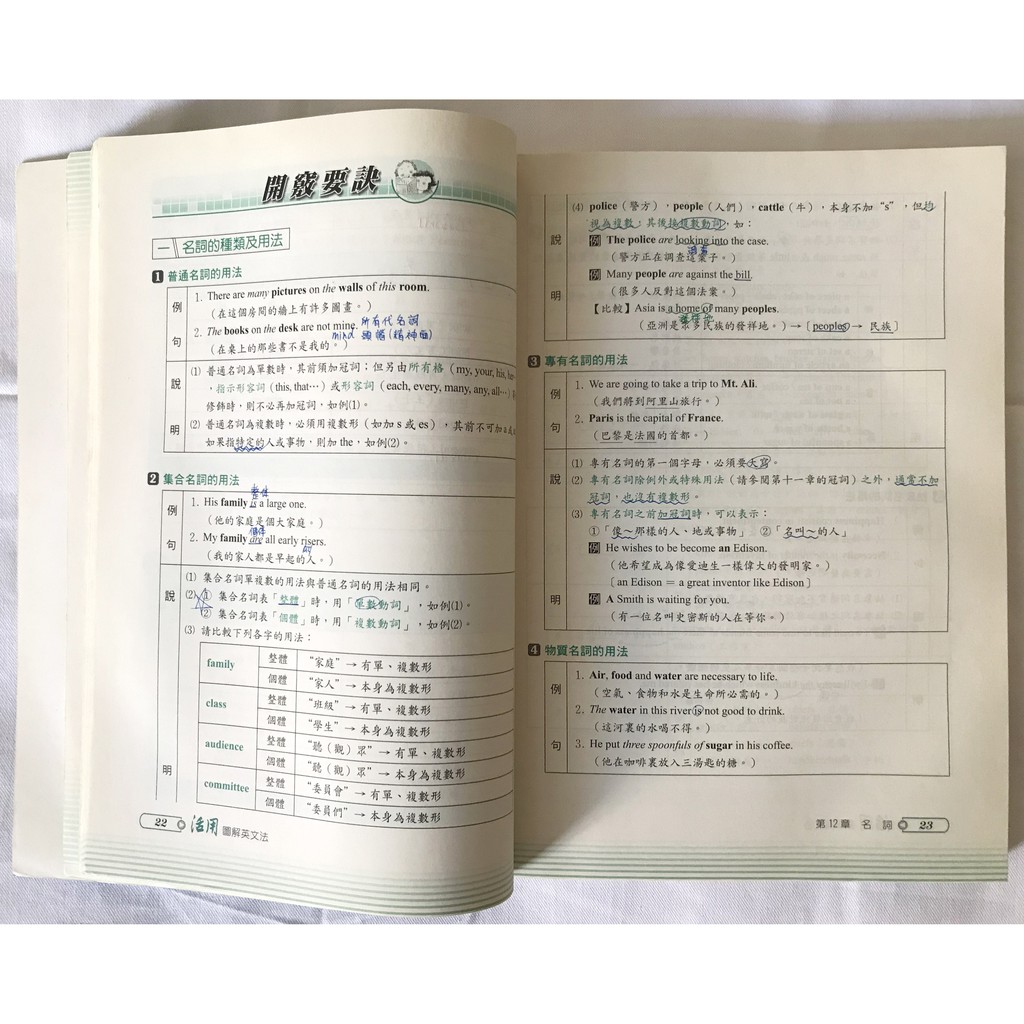 開竅要訣
一 名詞的種類及用法
1 普通名詞的用法
例句
1. There are many pictures on the walls of this room.
（在這個房間的牆上有許多圖畫。）
2. The books on the desk are not mine. 所有代名詞
（在桌上的那些書不是我的。） mind 頭腦(精神面)
說明
(1) 普通名詞為單數時，其前須加冠詞；但另由所有格（my, your, his, her
，指示形容詞 (this, that…) 或形容詞 (each, every, many, any, all…)
修飾時，則不必再加冠詞，如例(1)。
(2) 普通名詞為複數時，必須用複數形（如加 s 或 es），其前不可加 a 或
如果指特定的人或事物，則加 the，如例(2)。
2 集合名詞的用法
整體
例句
1. His family is a large one.
（他的家庭是個大家庭。）
個體
2. My family are all early risers.
（我的家人都是早起的人。）
說明
(1) 集合名詞單複數的用法與普通名詞的用法相同。
(2) ① 集合名詞表「整體」時，用「單數動詞」，如例(1)。
② 集合名詞表「個體」時，用「複數動詞」，如例(2)。
(3) 請比較下列各字的用法：
family 整體 “家庭” → 有單、複數形
個體 “家人” → 本身為複數形
class 整體 “班級” → 有單、複數形
個體 “學生” → 本身為複數形
audience 整體 “聽（觀）眾” → 有單、複數形
個體 “聽（觀）眾” → 本身為複數形
committee 整體 “委員會” → 有單、複數形
個體 “委員們” → 本身為複數形
22 活用 圖解英文法
說明
(4) police（警方），people（人們），cattle（牛），本身不加 “s”，但均
視為複數，其後接複數動詞，如：
例 The police are looking into the case.
調查
（警方正在調查這案子。）
例 Many people are against the bill.
（很多人反對這個法案。）
【比較】Asia is a home of many peoples.
（亞洲是眾多民族的發祥地。）→〔peoples → 民族〕
3 專有名詞的用法
例句
1. We are going to take a trip to Mt. Ali.
（我們將到阿里山旅行。）
2. Paris is the capital of France.
（巴黎是法國的首都。）
說明
(1) 專有名詞的第一個字母，必須要大寫。
(2) 專有名詞除例外或特殊用法（請參閱第十一章的冠詞）之外，通常不加
冠詞，也沒有複數形。
(3) 專有名詞之前加冠詞時，可以表示：
①「像～那樣的人、地或事物」 ②「名叫～的人」
例 He wishes to be become an Edison.
（他希望成為像愛迪生一樣偉大的發明家。）
〔an Edison = a great inventor like Edison〕
例 A Smith is waiting for you.
（有一位名叫史密斯的人在等你。）
4 物質名詞的用法
例句
1. Air, food and water are necessary to life.
（空氣、食物和水是生命所必需的。）
2. The water in this river is not good to drink.
（這河裏的水喝不得。）
3. He put three spoonfuls of sugar in his coffee.
（他在咖啡裏放入三湯匙的糖。）
第12章 名 詞 23